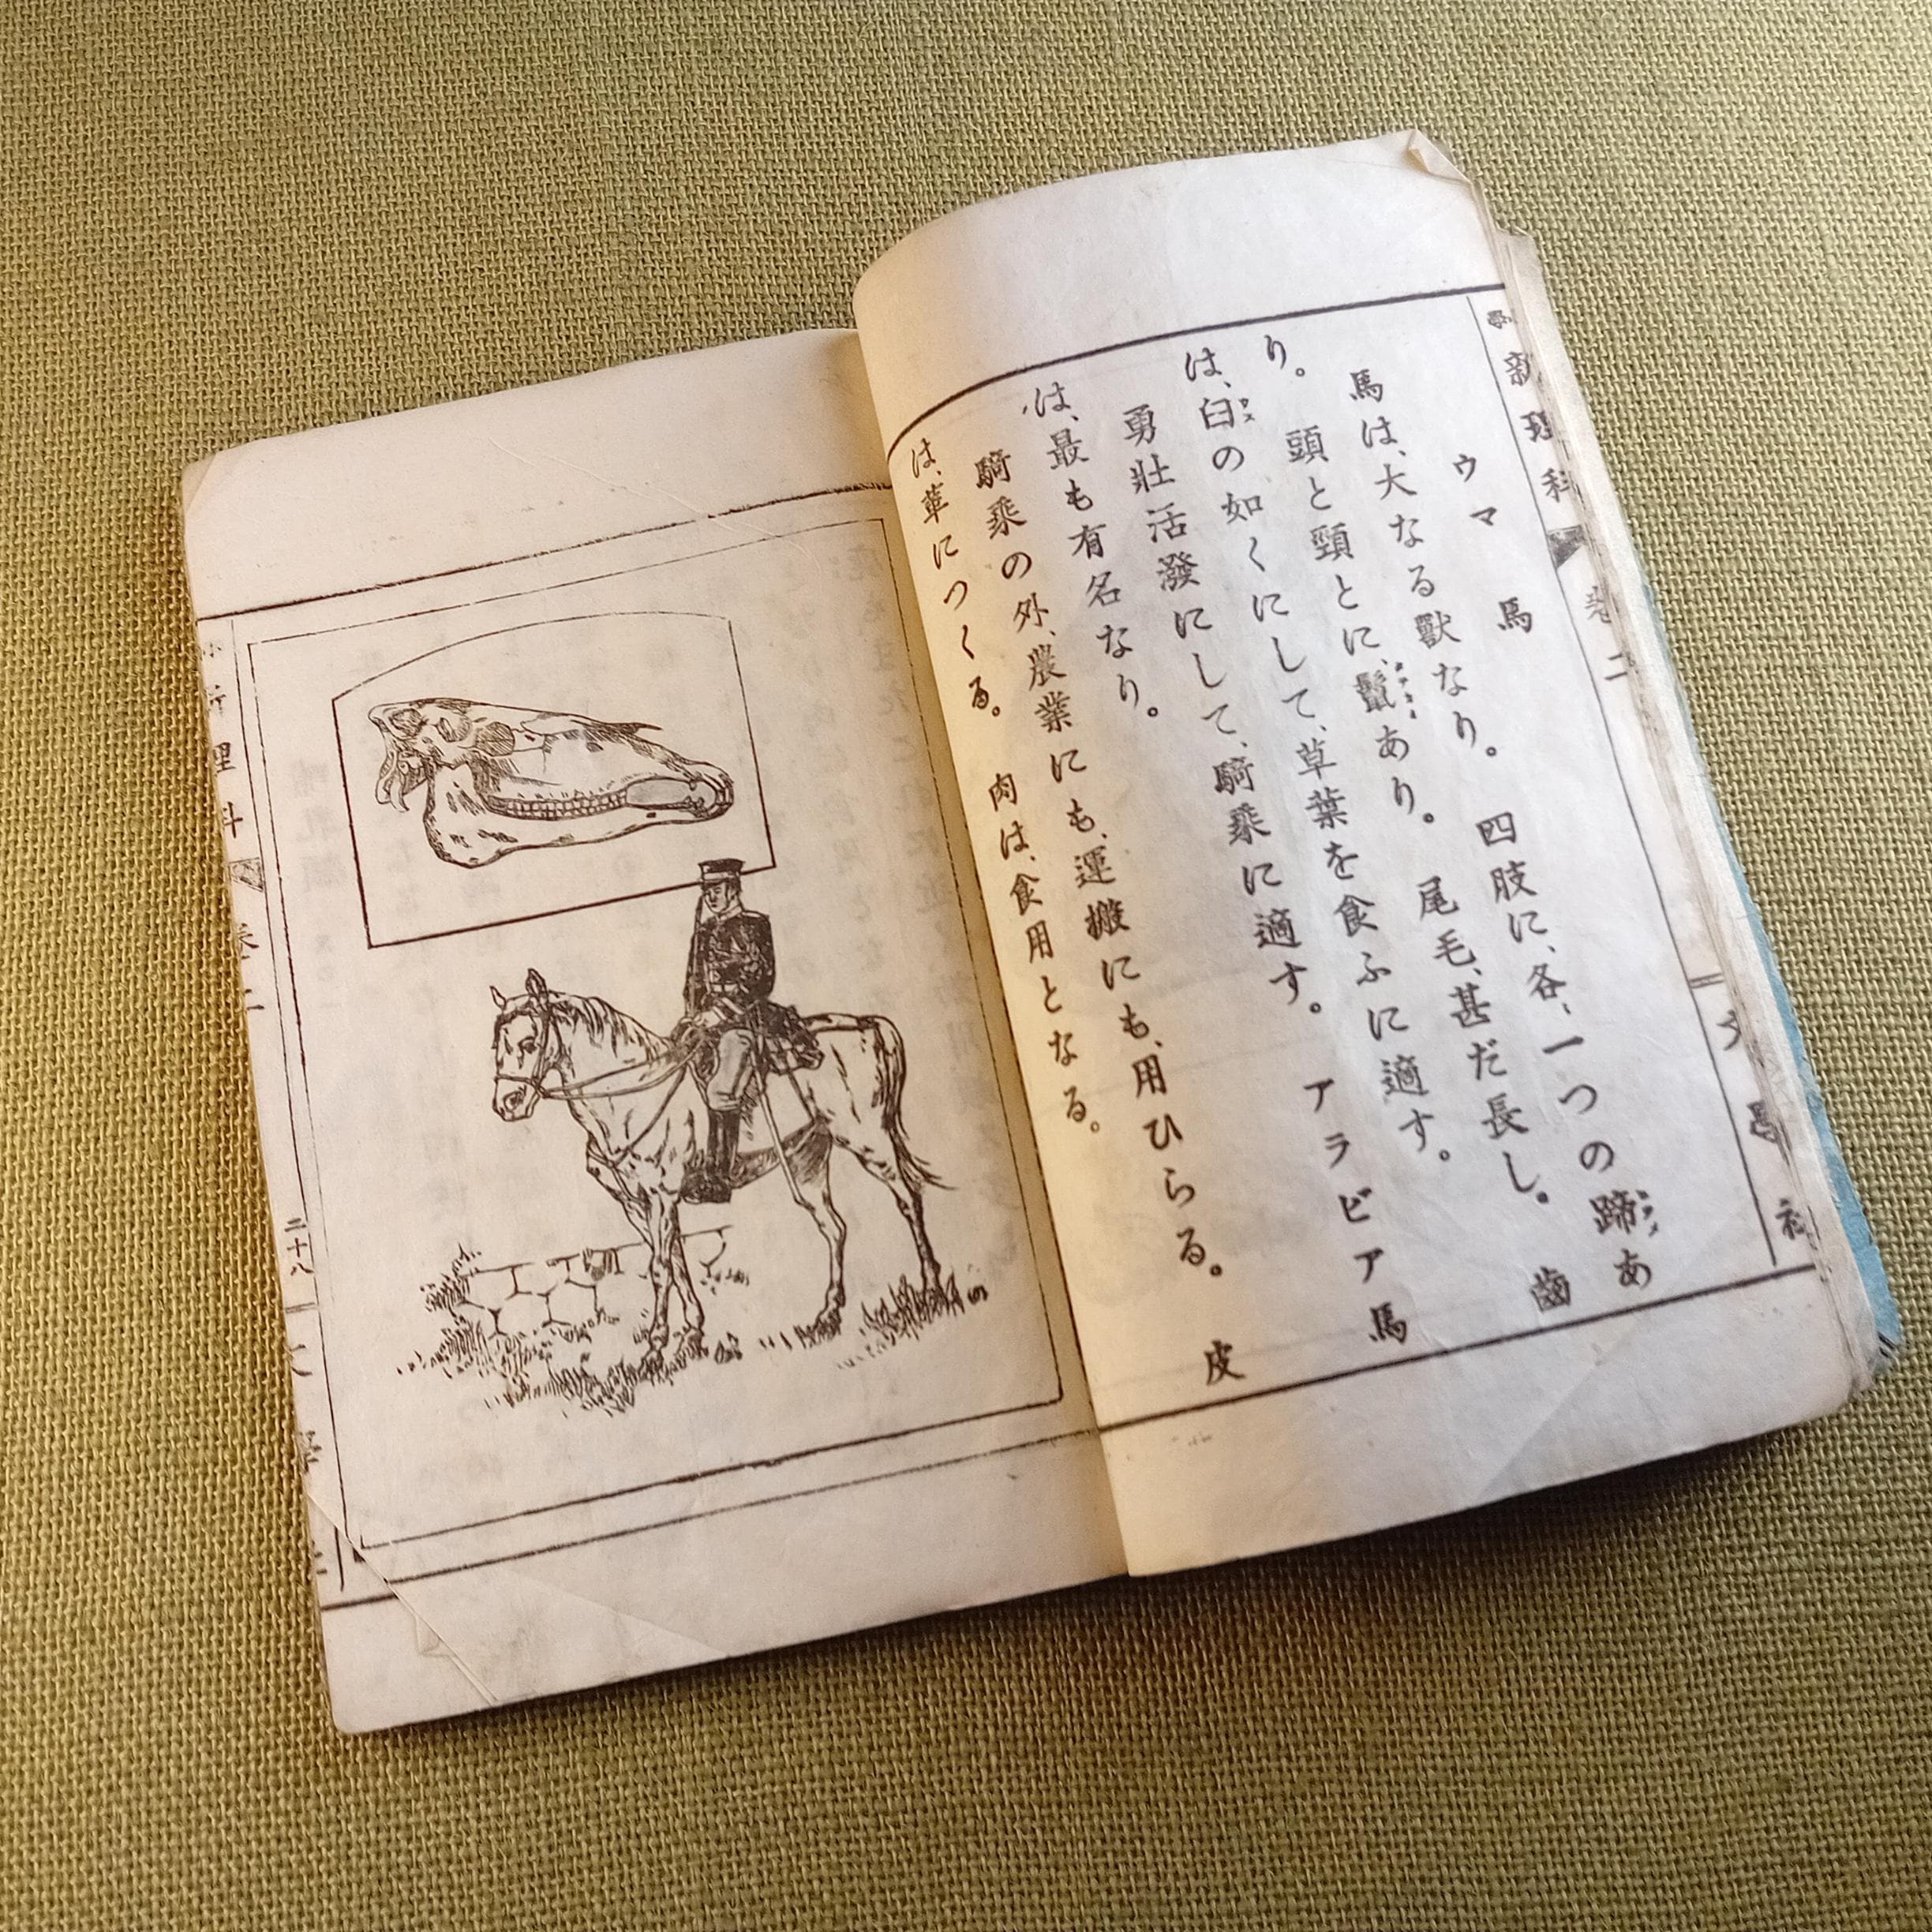 新理科 卷二
ウマ 馬
馬は、大なる獸なり。 四肢に、各、一つの蹄あ
り。 頭と頸とに、鬣あり。 尾毛、甚だ長し。 齒
は、臼の如くにして、草葉を食ふに適す。
勇壯活潑にして、騎乘に適す。 アラビア馬
は、最も有名なり。
騎乘の外、農業にも、運搬にも、用ひらる。 皮
は、革につくる。 肉は、食用となる。
理科 卷二 二十八